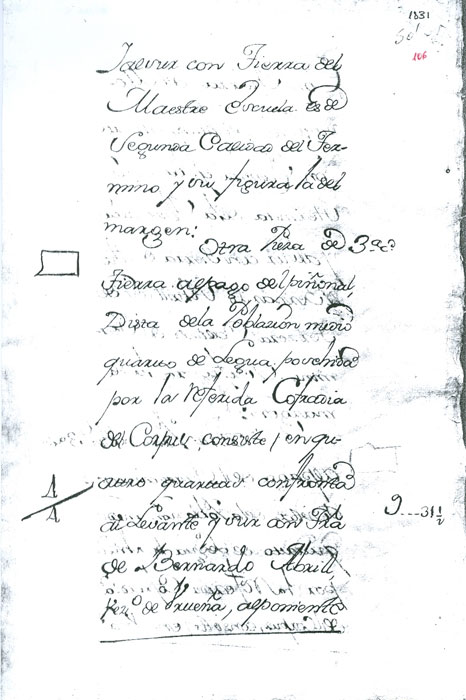 1831
106
y sur con Tierra del
Maestre Escuela es de
Segunda Calidad del Ter-
mino y su figura la del
margen:
Otra Pieza de 3ª
Tierra al pago del piñonal
Dista de la Poblazion medio
quarto de Legua, posehida
por la referida Cofradia
del Corpus consiste, en qu-
atro quartas confronta
al Levante y sur con Tra
de Bernardo Abril
Vezº de Brueña, al poniente
1
4
9---31 1/2